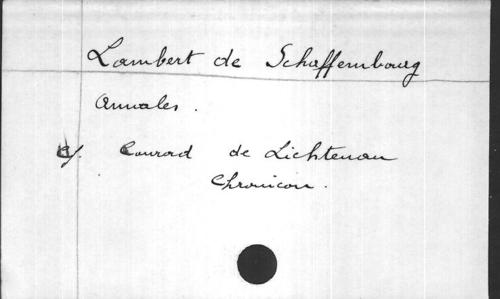 Lambert de Schaffembourg
Annales.
c/. Conrad de Lichtenau
Chronicon.